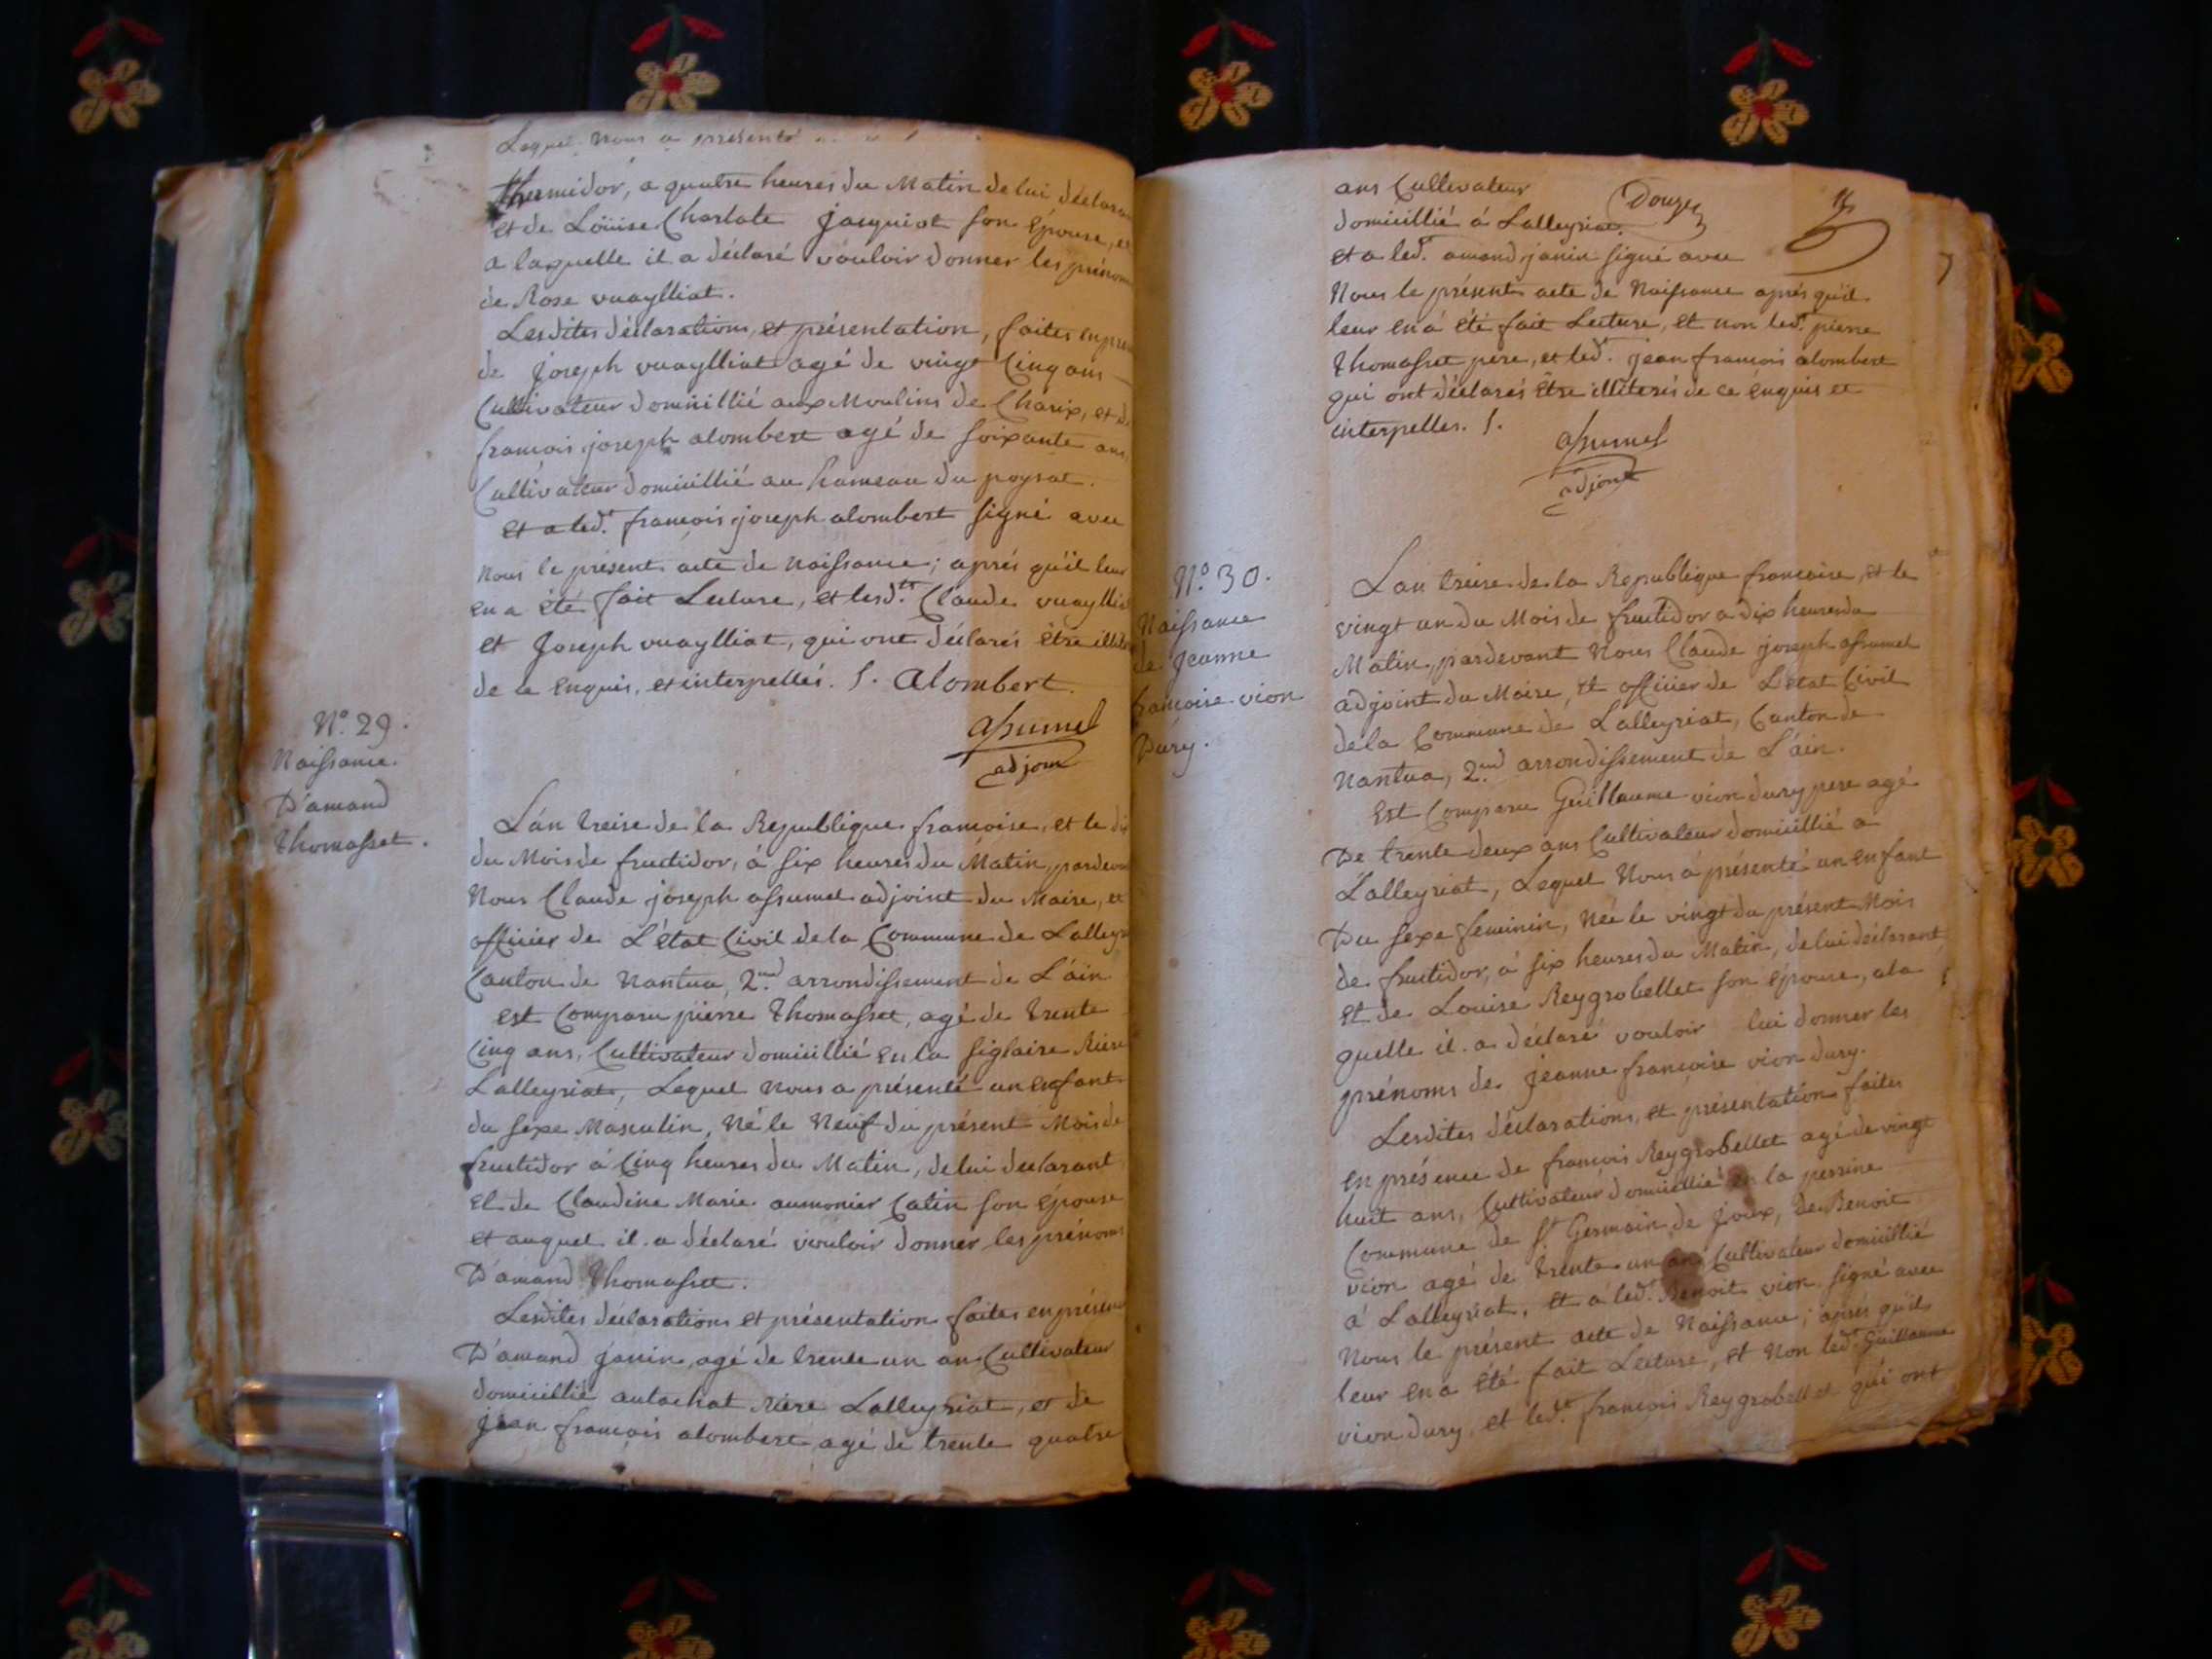 Lequel nous a présenté
thermidor, a quatre heures du Matin de lui déclara
et de Löuise Charlote Jacquiot son épouse, et
a laquelle il a déclaré vouloir donner les prénom
de Rose vuaylliat.
Lesdites déclarations, et présentation, faites en pré
de Joseph vuaylliat agé de vingt Cinq ans
Cultivateur domicillié aux Moulins de Charix, et d
francois joseph alombert agé de soixante ans
Cultivateur domicillié au hameau du poysat.
et a led.t francois joseph alombert signé avec
Nous le présent acte de naissance; aprés qu'il leur
en a été fait Lecture, et lesd.ts Claude vuayllia
et Joseph vuaylliat, qui ont déclarés être illite
de ce enquis, et interpellés. S. alombert.
assumel
adjoint
N.o 29.
Naissance.
D'amand
Thomasset.
L'an treise de la Republique francoise, et le di
du Mois de fructidor, á six heures du Matin, pardeva
Nous Claude joseph assumel adjoint du Maire, et
officier de L'état Civil de la Commune de Lalleyr
Canton de Nantua, 2.nd arrondissement de L'áin
est Comparu pierre Thomasset, agé de trente
Cinq ans, Cultivateur domicillié en la siglaire Riere
Lalleyriat, Lequel nous a présenté un enfant
du sexe Masculin, Né le Neuf du présent Mois de
fructidor á Cinq heures du Matin, de lui declarant
et de Claudine Marie aumonier Catin son épouse
et auquel il a déclaré vouloir donner les prénoms
D'amand Thomasset.
Lesdites déclarations et présentation faites en présen
D'amand janin, agé de trente un ans Cultivateur
domicillié aulachat Riere Lalleyriat, et de
Jean francois alombert agé de trente quatre
ans Cultivateur
domicillié á Lalleyriat.
Douze
et a led.t amand janin signé avec
Nous le présent acte de Naissance aprés qu'il
leur en á été fait Lecture, et non led.t pierre
Thomasset pere, et led.t jean francois alombert
qui ont déclarés être illiterés de ce enquis et
interpelles. S.
assumel
adjoint
N.o 30.
Naissance
de Jeanne
francoise vion
Dury.
L'an treise de la Republique francoise, et le
vingt un du Mois de fructidor a dix heures du
Matin, pardevant Nous Claude joseph assumel
adjoint du Maire, et officier de L'etat Civil
de la Commune de Lalleyriat, Canton de
Nantua, 2.nd arrondissement de L'áin.
Est Comparu Guillaume vion dury pere agé
De trente deux ans Cultivateur domicillié a
Lalleyriat, Lequel Nous á présenté un enfant
Du sexe féminin, Née le vingt du présent Mois
de fructidor, á six heures du Matin, de lui déclarant
et de Louise Reygrobellet son épouse, a la
quelle il a déclaré vouloir lui donner les
prénoms de Jeanne francoise vion dury.
Lesdites déclarations, et présentation faites
en présence de francois Reygrobellet agé de vingt
huit ans, Cultivateur domicillié en la perrine
Commune de S.t Germain de Joux, De Benoit
vion agé de trente un ans Cultivateur domicillié
á Lalleyriat, et á led.t Benoit vion signé avec
Nous le présent acte de Naissance; aprés qu'il
leur en a été fait Lecture, et Non led.t Guillaume
vion dury, et led.t francois Reygrobellet qui ont